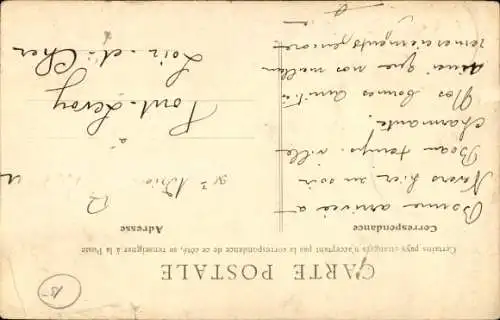 CARTE POSTALE
Certains pays étrangers n'acceptant pas la correspondance de ce côté, se renseigner à la Poste
Correspondance
Bonne arrivée à
Nevers hier au soir
Beau temps. ville
charmante.
Nos bonnes amitiés
ainsi que nos meilleurs
remerciements encore
Adresse
à
Pont-Levoy
Loir-et-Cher